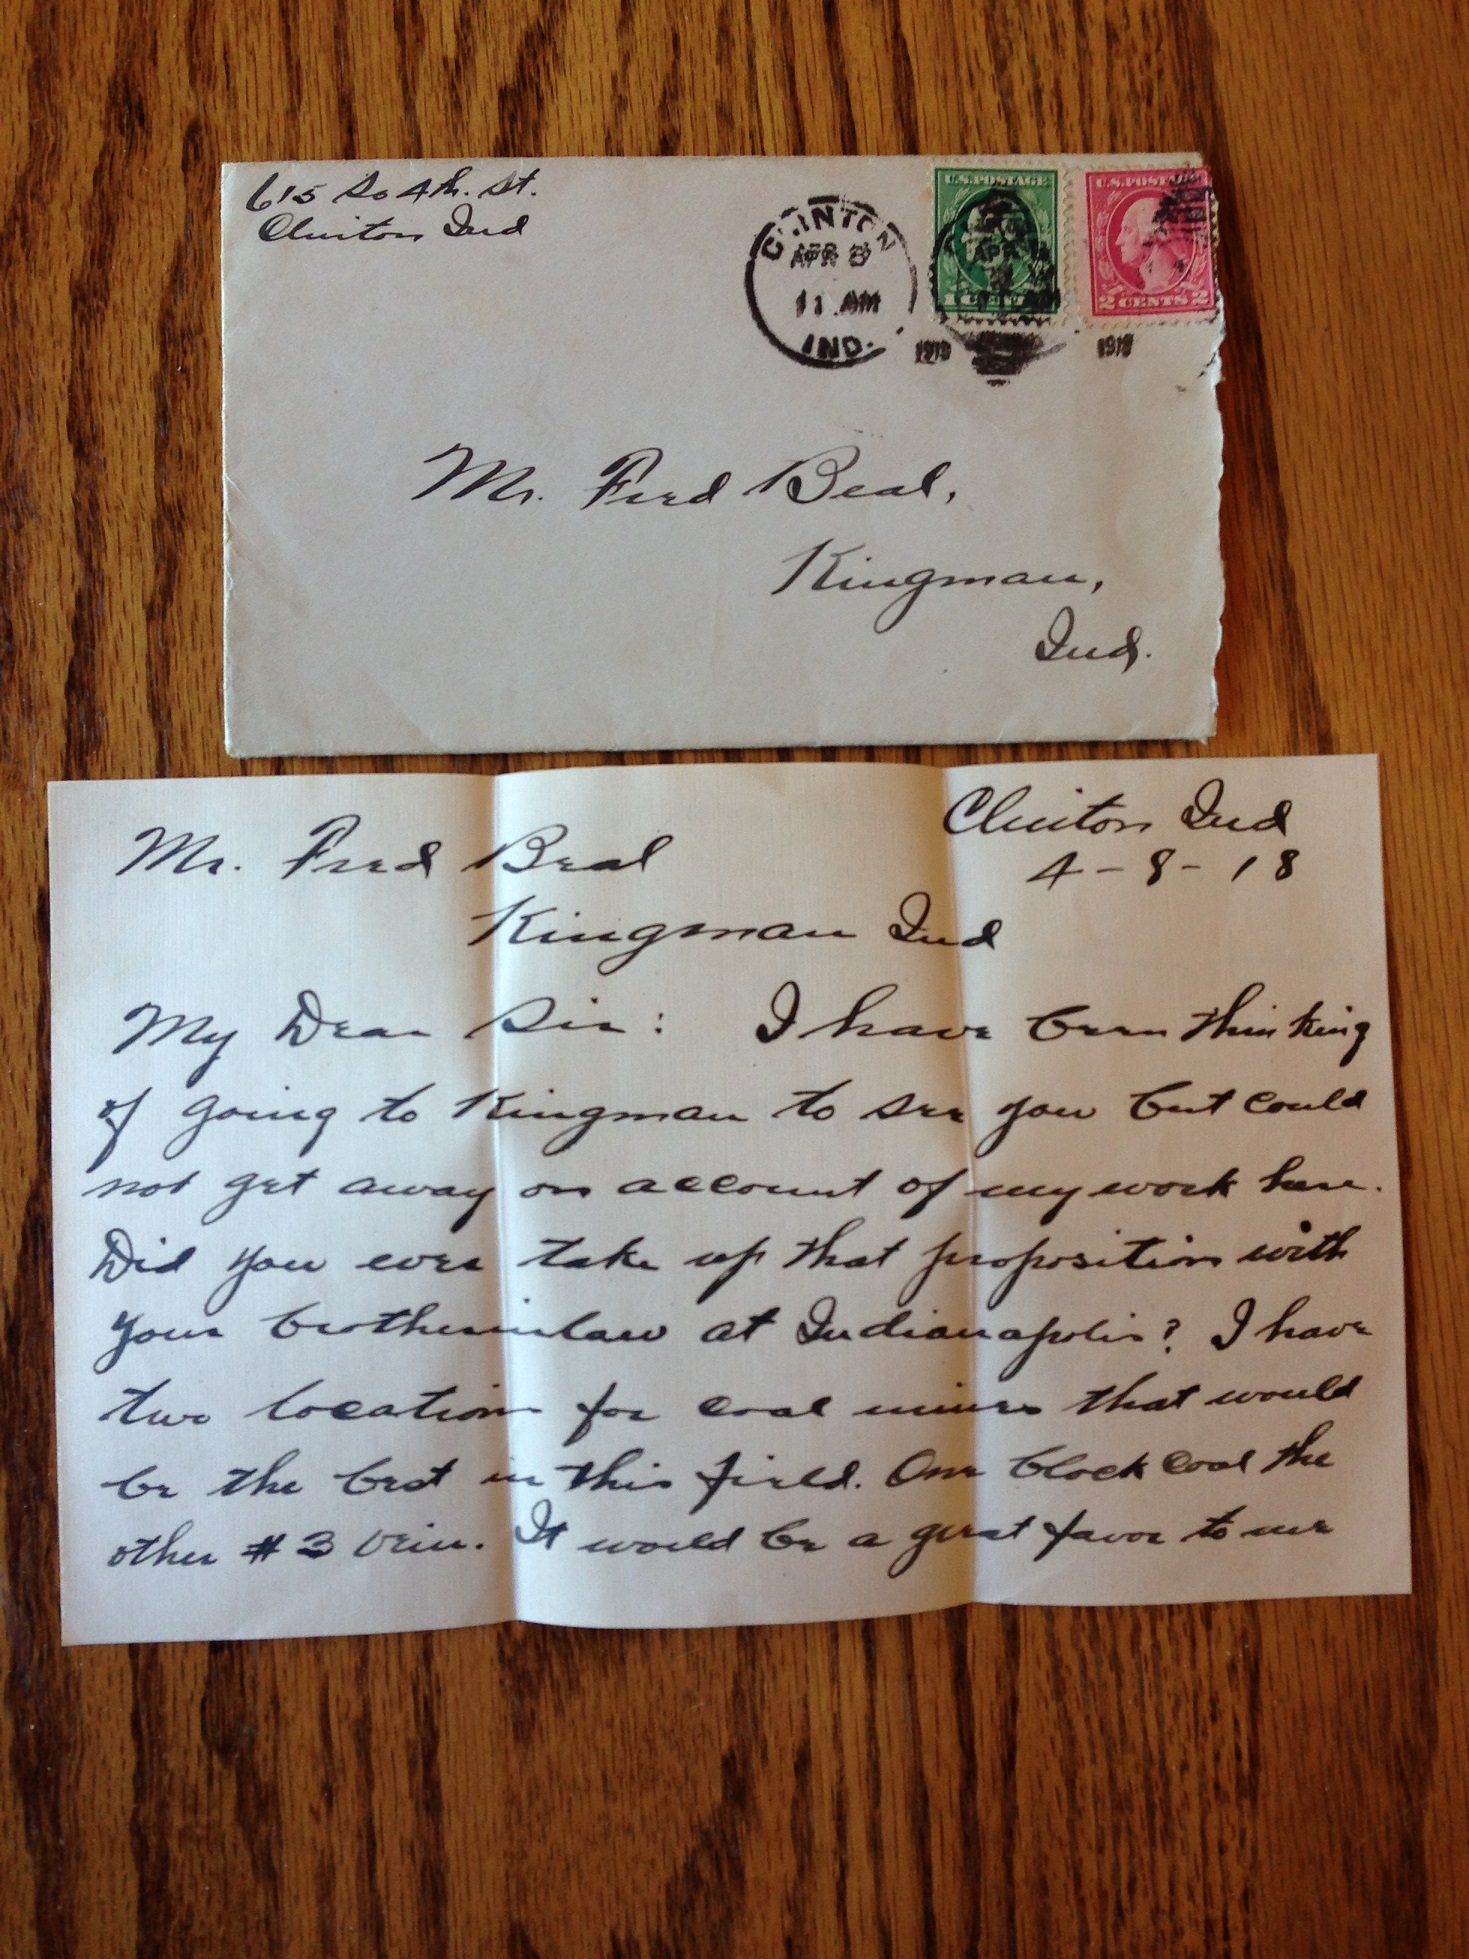 615 So 4th. St.
Clinton Ind
CLINTON
APR
11 AM
IND.
1918
1918
U.S. POSTAGE
1 CENT
U.S. POSTAGE
2 CENTS 2
Mr. Fred Beal,
Kingman,
Ind.
Clinton Ind
4-8-18
Mr. Fred Beal
Kingman Ind
My Dear Sir: I have been thinking
of going to Kingman to see you but could
not get away on account of my work here.
Did you ever take up that proposition with
your brotherinlaw at Indianapolis? I have
two locations for coal mines that would
be the best in this field. One block coal the
other # 3 vein. It would be a great favor to me